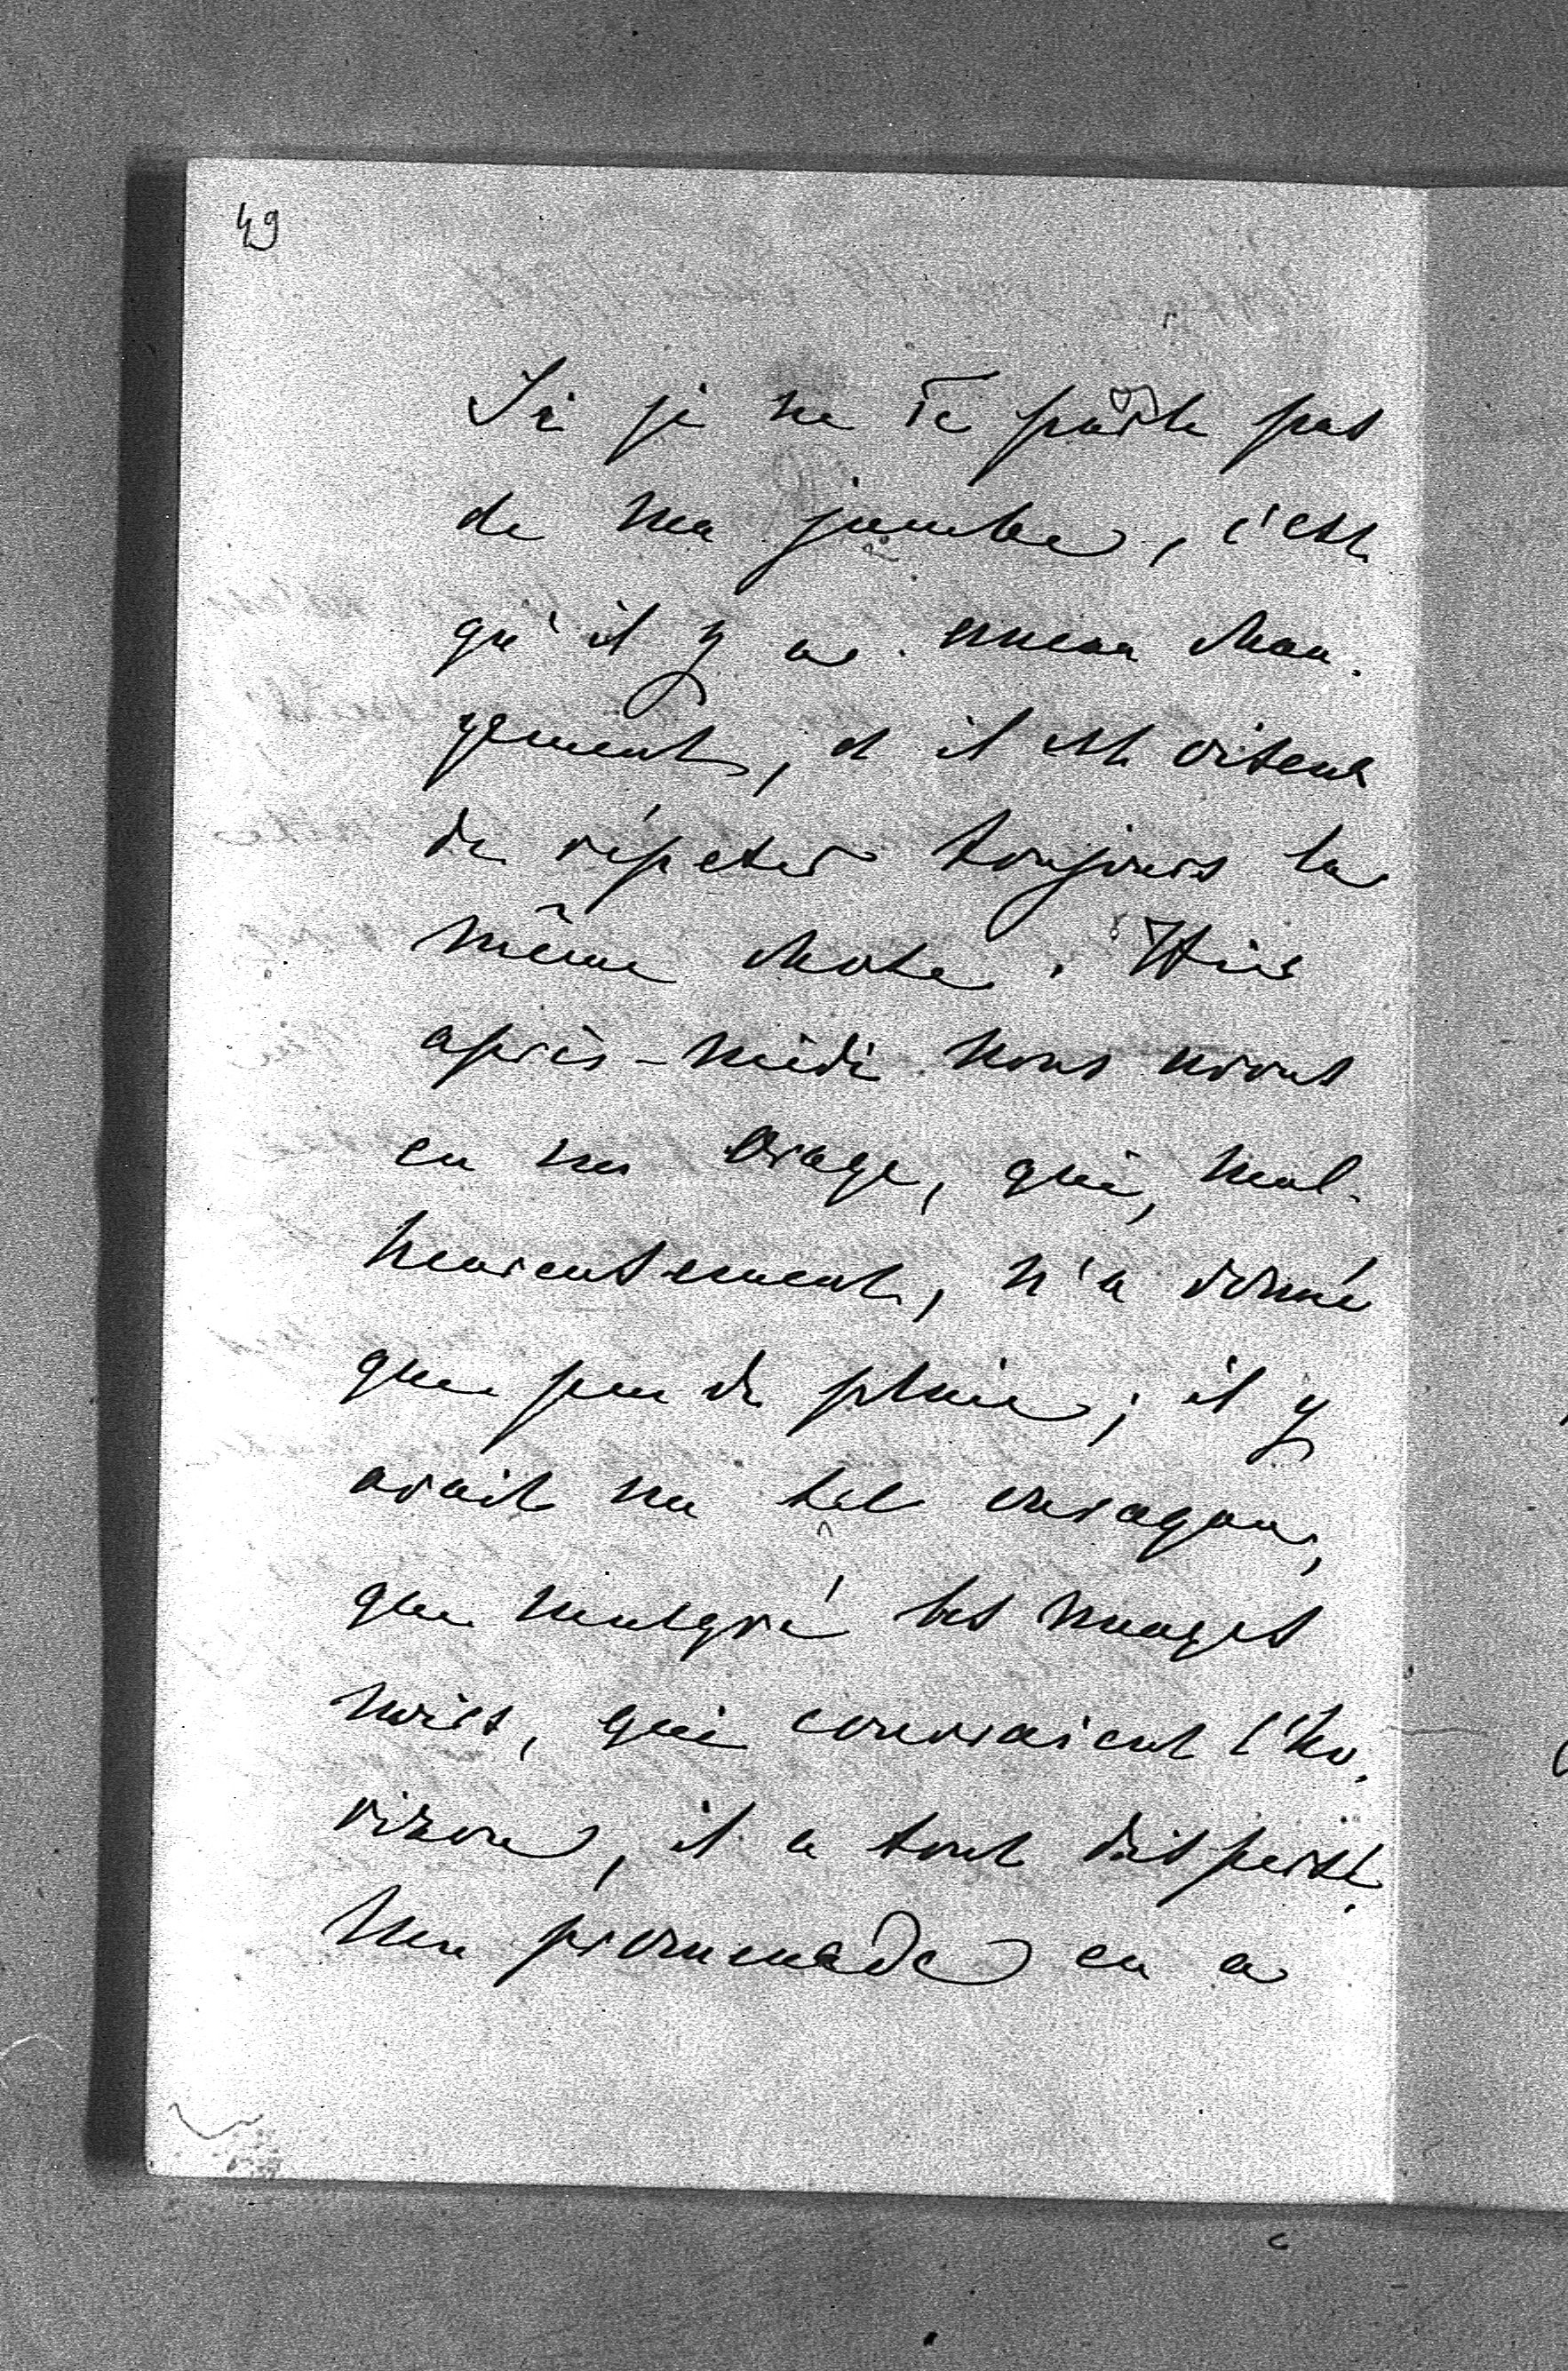 49
Si je ne Te parle pas
de ma jambe, c'est
qu'il y a aucun chan-
gement, et il est oiseux
de répéter toujours la
même chose. Hier
après-midi nous avons
eu un orage, qui, mal-
heureusement, n'a donné
que peu de pluie; il y
avait un tel ouragan,
que malgré les nuages
noirs, qui couvraient l'ho-
rizon, il a tout dispersé.
Ma promenade en a